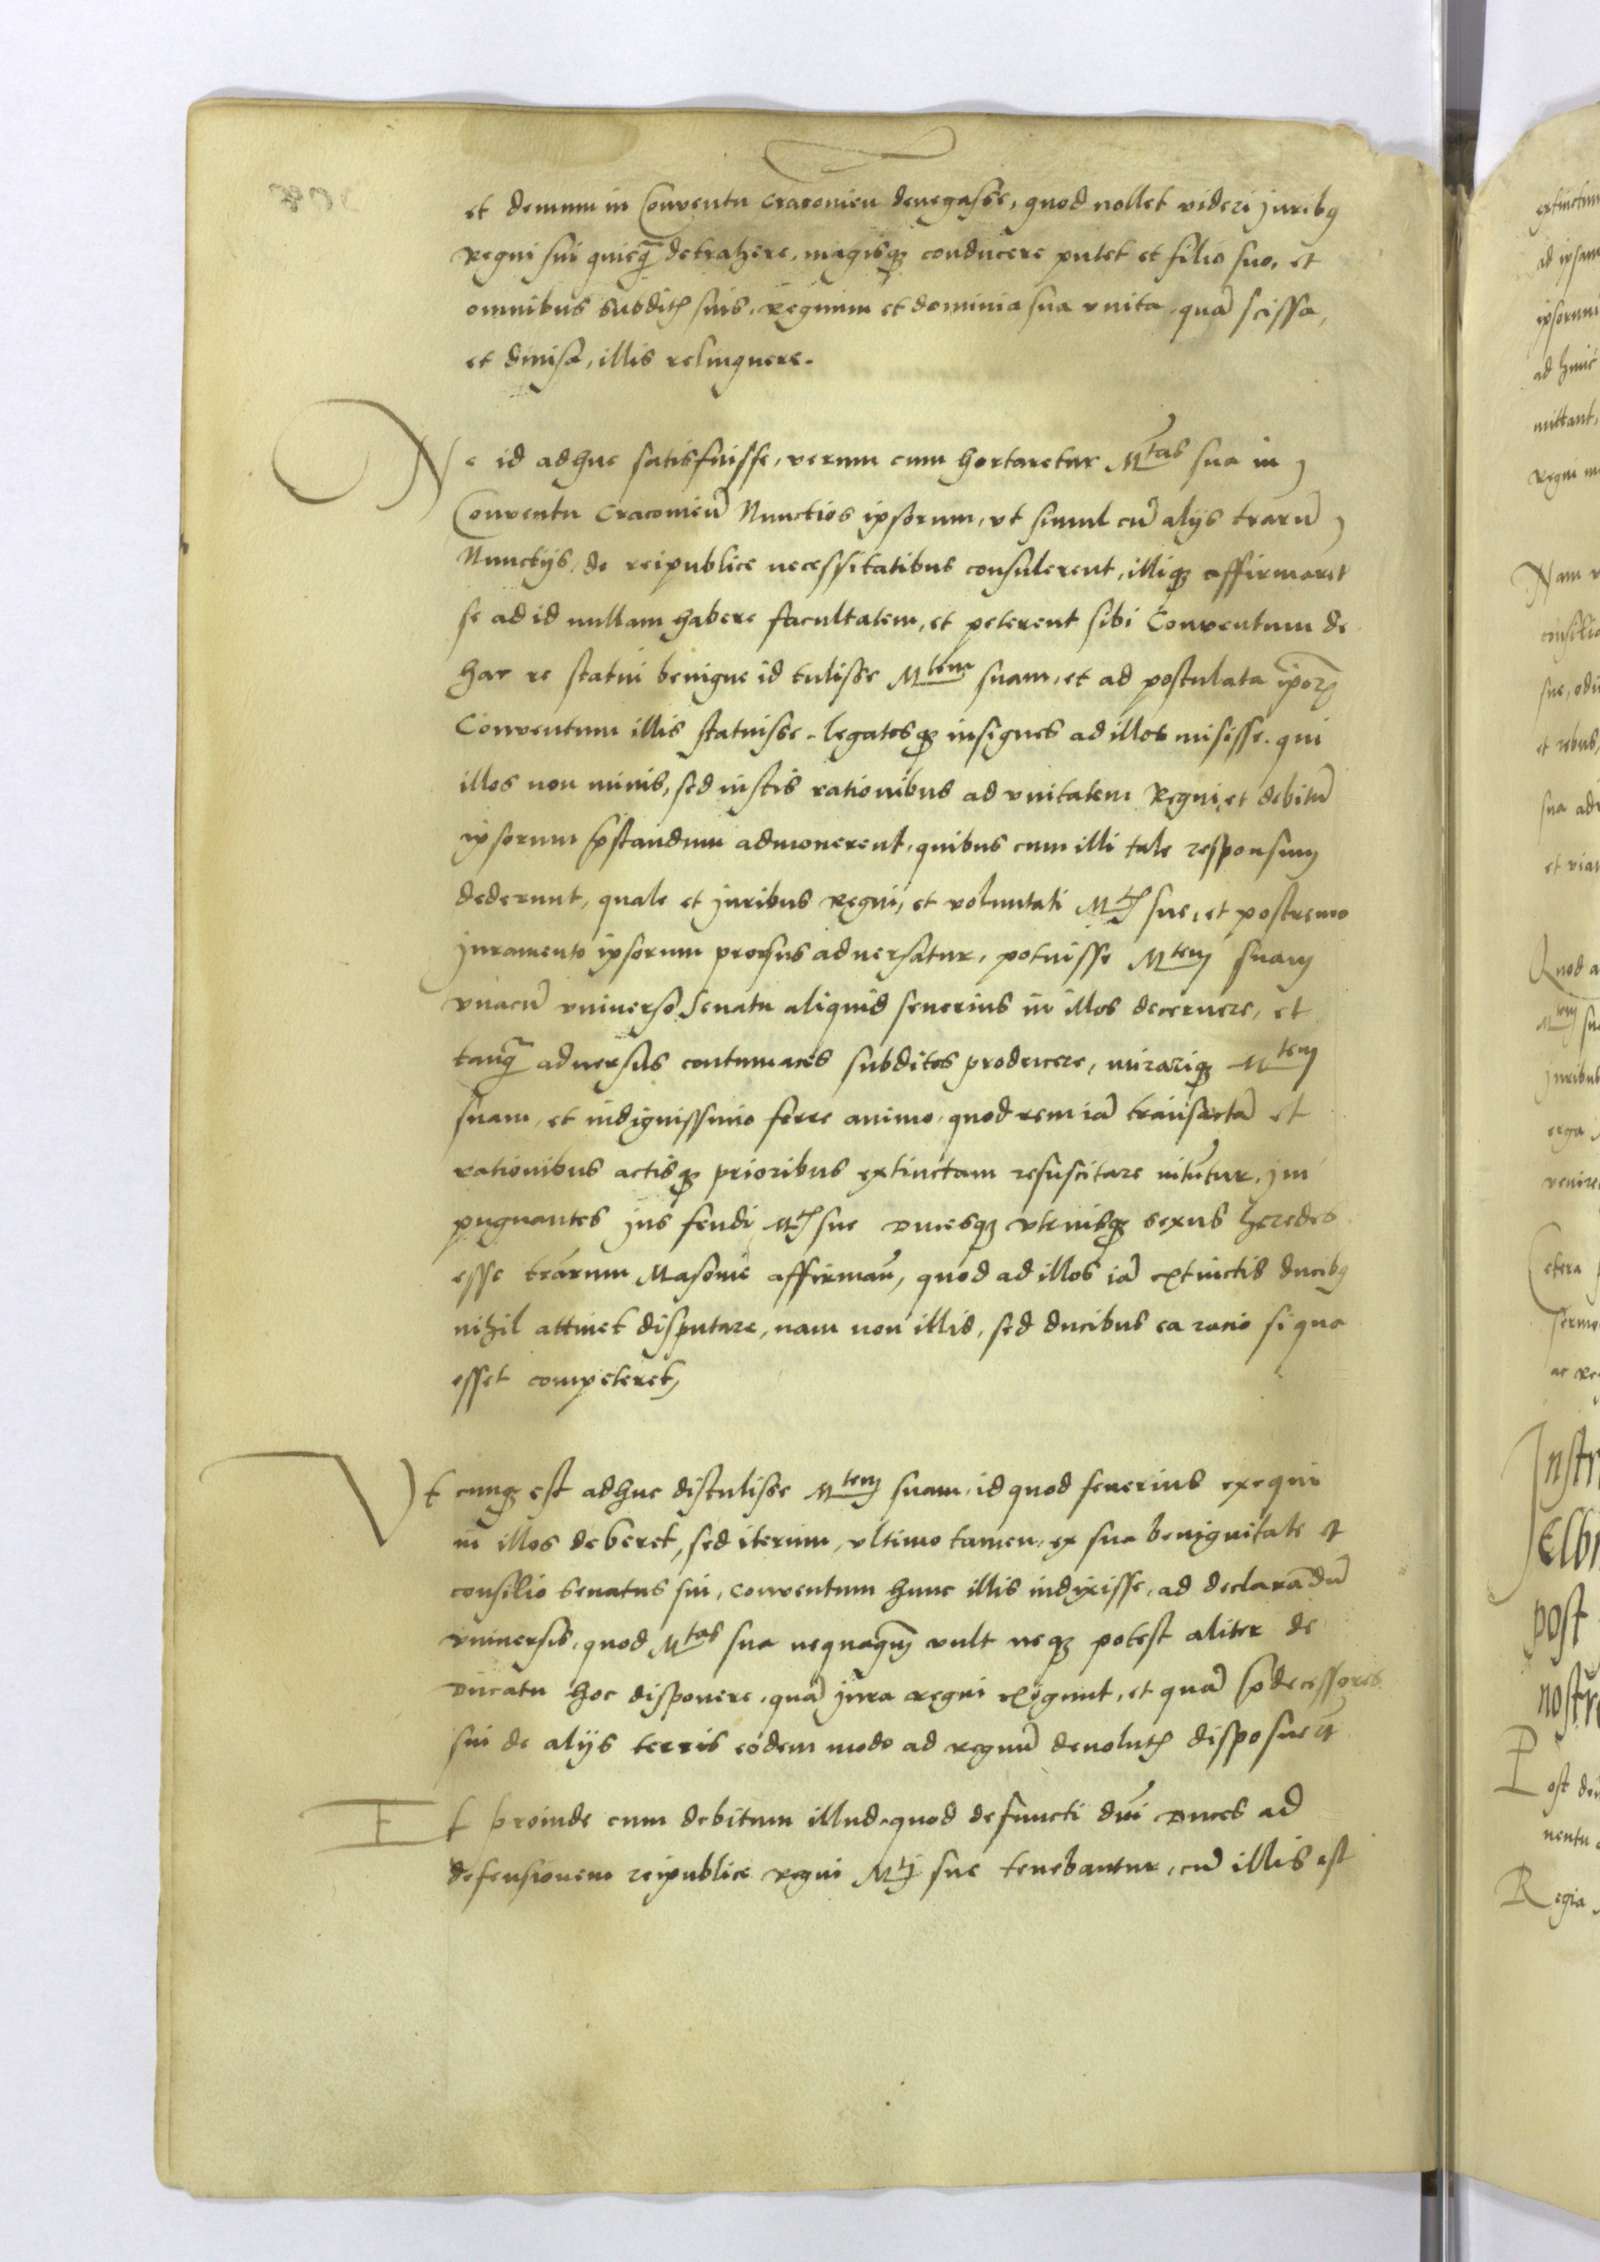 et demum in Conventu Cracovieñ denegasse, quod nollet videri juribq
Regni sui quicq̃ detrahere, magisq̧ conducere putet et filio suo, et
omnibus subditꝭ suis, Regnum et dominia sua vnita, quã scissa,
et divisa, illis relinquere.
Ne id adhuc satisfuisse, verum cum hortaretur Mtas sua in
Conventu Cracovieñ Nunctios ipsorum, vt simul cũ alijs trarũ
Nunctijs, de reipublice necessitatibus consulerent, illiq̧ affirmaret
se ad id nullam habere facultatem, et peterent sibi Conventum de
hac re statui benigne id tulisse Mtem suam, et ad postulata ipoꝝ
Conventum illis statuisse, legatosq̧ insignes ad illos misisse, qui
illos non minis, sed iustis rationibus ad vnitatem Regni, et debitũ
ipsorum p̃standum admonerent, quibus cum illi tale responsum
dederunt, quale et juribus Regni, et voluntati Mtꝭ sue, et postremo
juramento ipsorum prorsus adversatur, potuisse Mtem suam
vnacũ vniverso Senatu aliquid severius in illos decernere, et
tanq̃ adversus contumaces subditos producere, mirariq̧ Mtem
suam, et indignissimo ferre animo, quod rem iã transactã et
rationibus actisq̧ prioribus extinctam resuscitare nitũtur, jm
pugnantes jus feudi Mtꝭ sue Ducesq̧ vtriusq̧ sexus heredes
esse trarum Masovie affirmañ, quod ad illos iã extinctis ducibq
nihil attinet disputare, nam non illis, sed ducibus ea racio si qua
esset competeret,
Vt cunq̧ est adhuc distulisse Mtem suam, id quod severius exequi
in illos deberet, sed iterum, vltimo tamen, ex sua benignitate et
consilio senatus sui, conventum hunc illis indixisse, ad declarãdũ
vniversis, quod Mtas sua nequaq̃m vult neq̧ potest aliter de
Ducatu hoc disponere, quã jura regni exigunt, et quã p̃decessores
sui de alijs terris eodem modo ad regnũ devolutꝭ disposuer̃t
Et proinde cum debitum illud, quod defuncti dñi Duces ad
defensionem reipublice regni Mtꝭ sue tenebantur, cũ illis est